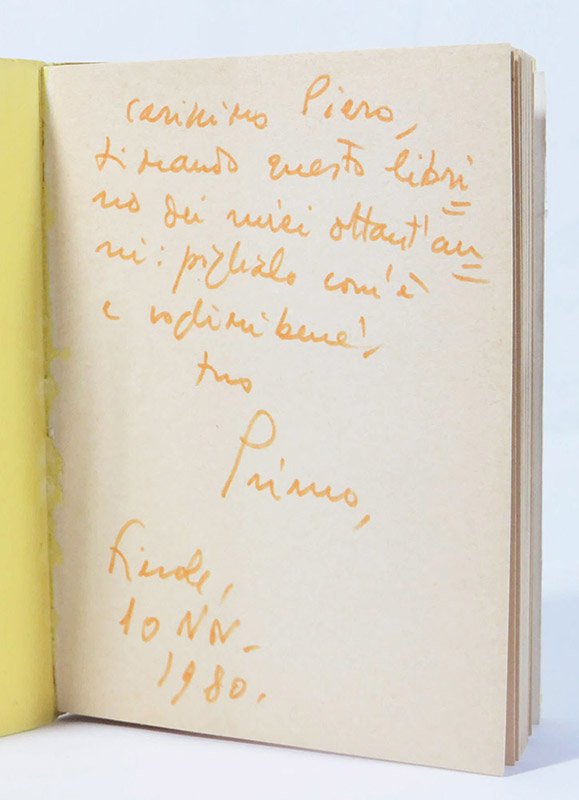 carissimo Piero,
ti mando questo libri=
no dei miei ottant'an=
ni: piglialo com'è
e voglimi bene!,
tuo
Primo,
Fiesole,
10 NOV.
1980.